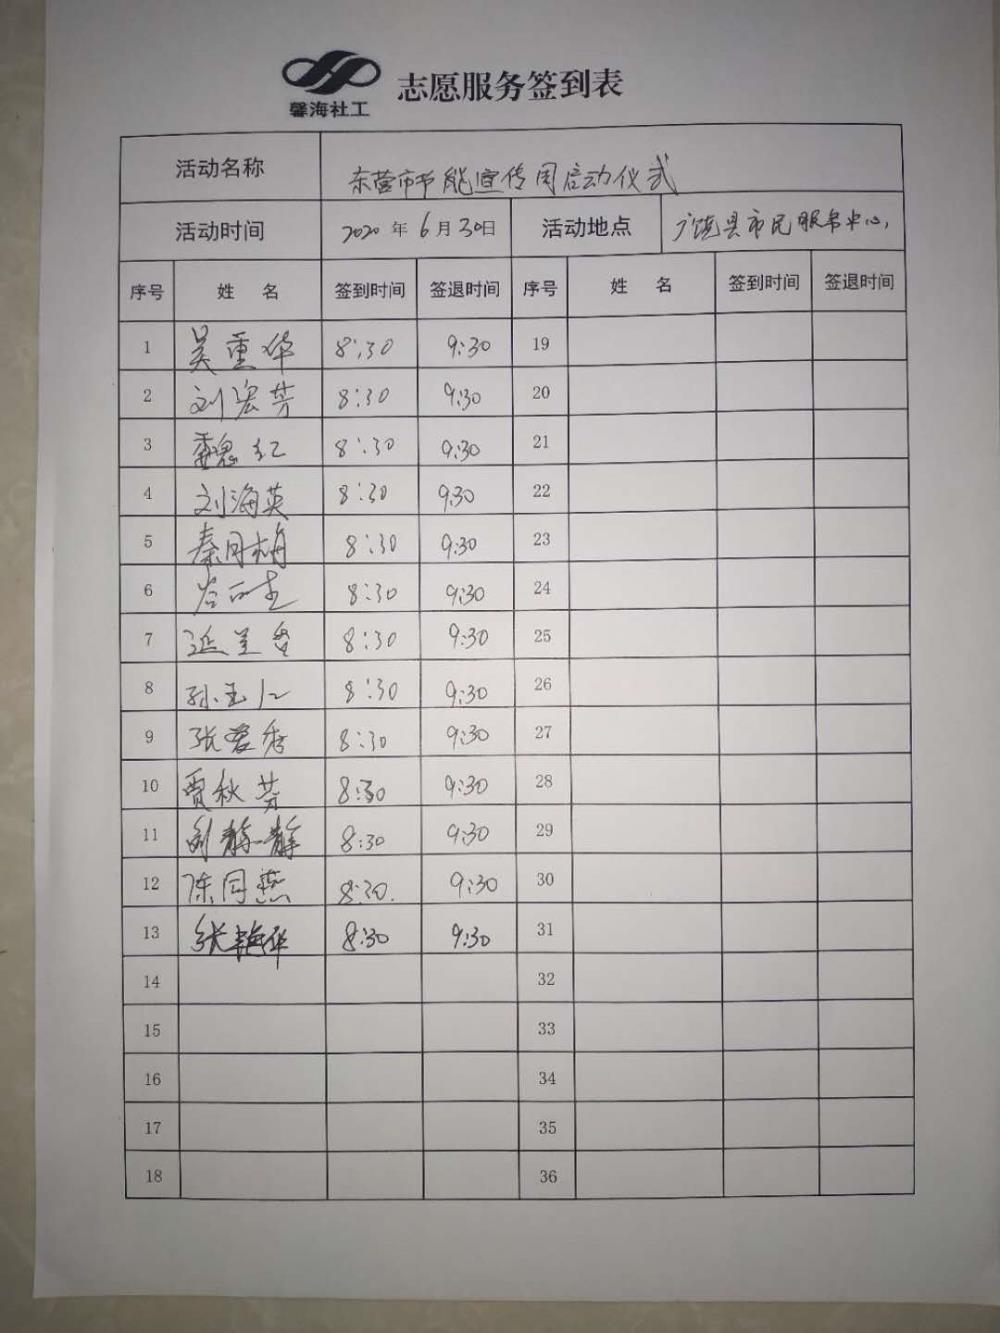 馨海社工
志愿服务签到表
活动名称 东营市节能宣传周启动仪式
活动时间 2020年6月30日 活动地点 广饶县市民服务中心,
序号 姓 名 签到时间 签退时间 序号 姓 名 签到时间 签退时间
1 吴重华 8:30 9:30 19
2 刘宏芳 8:30 9:30 20
3 魏红 8:30 9:30 21
4 刘海英 8:30 9:30 22
5 秦月梅 8:30 9:30 23
6 8:30 9:30 24
7 延 8:30 9:30 25
8 孙玉仁 8:30 9:30 26
9 张爱香 8:30 9:30 27
10 贾秋芳 8:30 9:30 28
11 刘静静 8:30 9:30 29
12 陈同燕 8:30. 9:30 30
13 张梅华 8:30 9:30 31
14 32
15 33
16 34
17 35
18 36